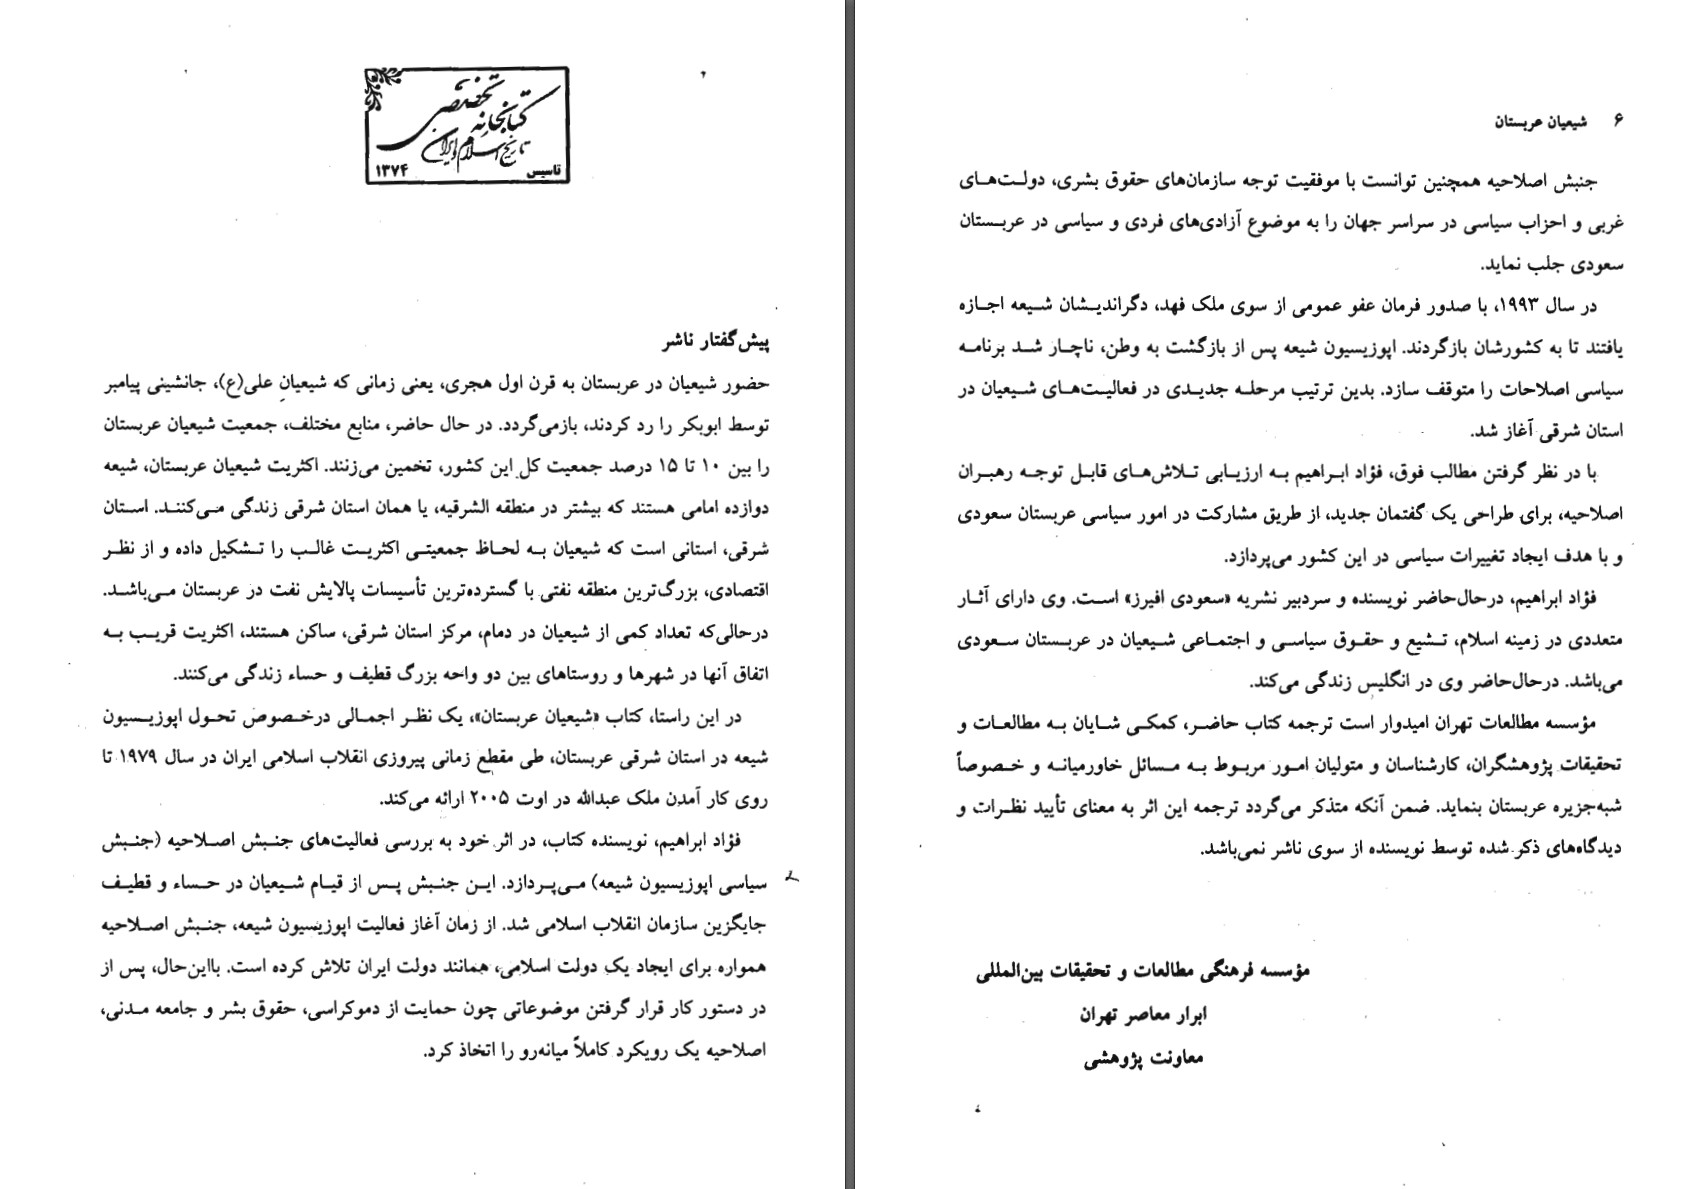 کتابخانه تخصصی
تاریخ اسلام و ایران
تاسیس ۱۳۷۴
پیش‌گفتار ناشر
حضور شیعیان در عربستان به قرن اول هجری، یعنی زمانی که شیعیان علی(ع)، جانشینی پیامبر
توسط ابوبکر را رد کردند، بازمی‌گردد. در حال حاضر، منابع مختلف، جمعیت شیعیان عربستان
را بین ۱۰ تا ۱۵ درصد جمعیت کل این کشور، تخمین می‌زنند. اکثریت شیعیان عربستان، شیعه
دوازده امامی هستند که بیشتر در منطقه الشرقیه، یا همان استان شرقی زندگی می‌کنند. استان
شرقی، استانی است که شیعیان به لحاظ جمعیتی اکثریت غالب را تشکیل داده و از نظر
اقتصادی، بزرگ‌ترین منطقه نفتی با گسترده‌ترین تأسیسات پالایش نفت در عربستان می‌باشد.
درحالی‌که تعداد کمی از شیعیان در دمام، مرکز استان شرقی، ساکن هستند، اکثریت قریب به
اتفاق آنها در شهرها و روستاهای بین دو واحه بزرگ قطیف و حساء زندگی می‌کنند.
در این راستا، کتاب «شیعیان عربستان»، یک نظر اجمالی درخصوص تحول اپوزیسیون
شیعه در استان شرقی عربستان، طی مقطع زمانی پیروزی انقلاب اسلامی ایران در سال ۱۹۷۹ تا
روی کار آمدن ملک عبدالله در اوت ۲۰۰۵ ارائه می‌کند.
فؤاد ابراهیم، نویسنده کتاب، در اثر خود به بررسی فعالیت‌های جنبش اصلاحیه (جنبش
سیاسی اپوزیسیون شیعه) می‌پردازد. این جنبش پس از قیام شیعیان در حساء و قطیف
جایگزین سازمان انقلاب اسلامی شد. از زمان آغاز فعالیت اپوزیسیون شیعه، جنبش اصلاحیه
همواره برای ایجاد یک دولت اسلامی، همانند دولت ایران تلاش کرده است. بااین‌حال، پس از
در دستور کار قرار گرفتن موضوعاتی چون حمایت از دموکراسی، حقوق بشر و جامعه مدنی،
اصلاحیه یک رویکرد کاملاً میانه‌رو را اتخاذ کرد.
۶ شیعیان عربستان
جنبش اصلاحیه همچنین توانست با موفقیت توجه سازمان‌های حقوق بشری، دولت‌های
غربی و احزاب سیاسی در سراسر جهان را به موضوع آزادی‌های فردی و سیاسی در عربستان
سعودی جلب نماید.
در سال ۱۹۹۳، با صدور فرمان عفو عمومی از سوی ملک فهد، دگراندیشان شیعه اجازه
یافتند تا به کشورشان بازگردند. اپوزیسیون شیعه پس از بازگشت به وطن، ناچار شد برنامه
سیاسی اصلاحات را متوقف سازد. بدین ترتیب مرحله جدیدی در فعالیت‌های شیعیان در
استان شرقی آغاز شد.
با در نظر گرفتن مطالب فوق، فؤاد ابراهیم به ارزیابی تلاش‌های قابل توجه رهبران
اصلاحیه، برای طراحی یک گفتمان جدید، از طریق مشارکت در امور سیاسی عربستان سعودی
و با هدف ایجاد تغییرات سیاسی در این کشور می‌پردازد.
فؤاد ابراهیم، درحال‌حاضر نویسنده و سردبیر نشریه «سعودی افیرز» است. وی دارای آثار
متعددی در زمینه اسلام، تشیع و حقوق سیاسی و اجتماعی شیعیان در عربستان سعودی
می‌باشد. درحال‌حاضر وی در انگلیس زندگی می‌کند.
مؤسسه مطالعات تهران امیدوار است ترجمه کتاب حاضر، کمکی شایان به مطالعات و
تحقیقات پژوهشگران، کارشناسان و متولیان امور مربوط به مسائل خاورمیانه و خصوصاً
شبه‌جزیره عربستان بنماید. ضمن آنکه متذکر می‌گردد ترجمه این اثر به معنای تأیید نظرات و
دیدگاه‌های ذکر شده توسط نویسنده از سوی ناشر نمی‌باشد.
مؤسسه فرهنگی مطالعات و تحقیقات بین‌المللی
ابرار معاصر تهران
معاونت پژوهشی